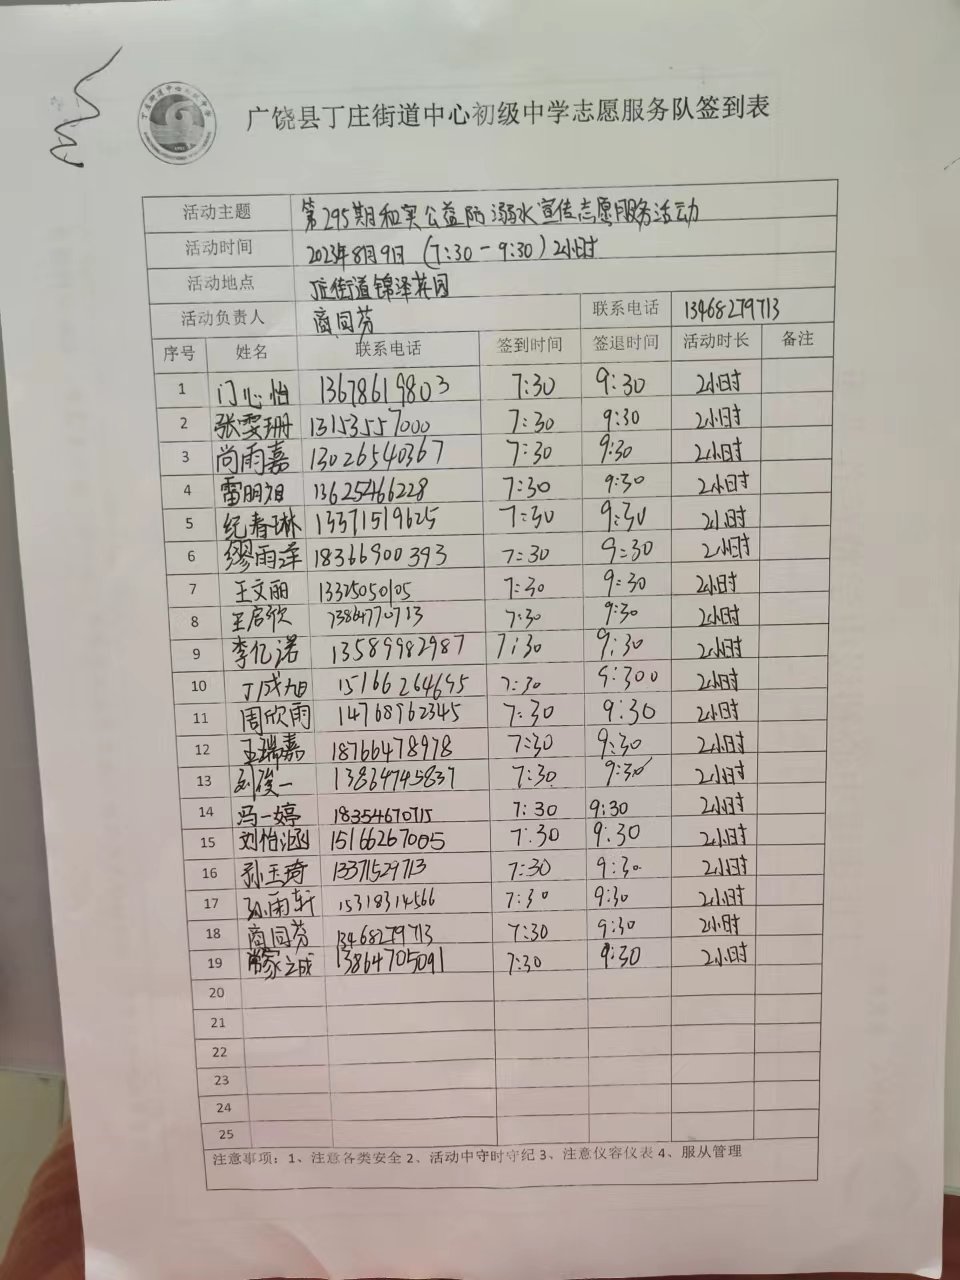 广饶县丁庄街道中心初级中学志愿服务队签到表
活动主题 第295期和美公益防溺水宣传志愿服务活动
活动时间 2023年8月9日 (7:30-9:30) 2小时
活动地点 丁庄街道锦泽花园
活动负责人 商同芬 联系电话 13468279713
序号 姓名 联系电话 签到时间 签退时间 活动时长 备注
1 门心怡 13678619803 7:30 9:30 2小时
2 张雯珊 13153557000 7:30 9:30 2小时
3 尚雨嘉 13026540367 7:30 9:30 2小时
4 雷明旭 13625466228 7:30 9:30 2小时
5 纪春琳 13371519625 7:30 9:30 2小时
6 缪雨泽 18366900393 7:30 9:30 2小时
7 王文丽 13325050105 7:30 9:30 2小时
8 王启欣 13864770713 7:30 9:30 2小时
9 李亿诺 13589982987 7:30 9:30 2小时
10 丁成旭 15166264695 7:30 9:300 2小时
11 周欣雨 14768962345 7:30 9:30 2小时
12 王瑞嘉 18766478978 7:30 9:30 2小时
13 刘俊一 13864745837 7:30 9:30 2小时
14 冯一婷 18354670715 7:30 9:30 2小时
15 刘怡涵 15166267005 7:30 9:30 2小时
16 孙玉琦 13371529713 7:30 9:30 2小时
17 孙雨轩 15318314566 7:30 9:30 2小时
18 商同芬 13468279713 7:30 9:30 2小时
19 常家之成 13864705091 7:30 9:30 2小时
20
21
22
23
24
25
注意事项：1、注意各类安全 2、活动中守时守纪 3、注意仪容仪表 4、服从管理